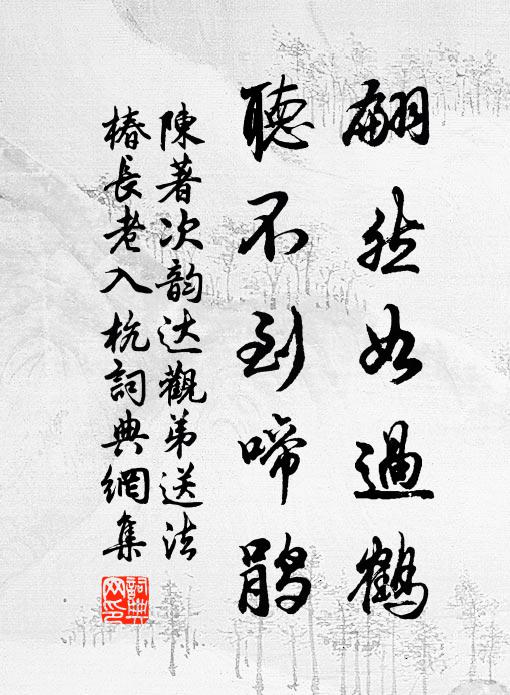 翩然如過鶴
聽不到啼鹃
陳著次韵达觀弟送法
椿長老入杭詞典網集
詞典网印